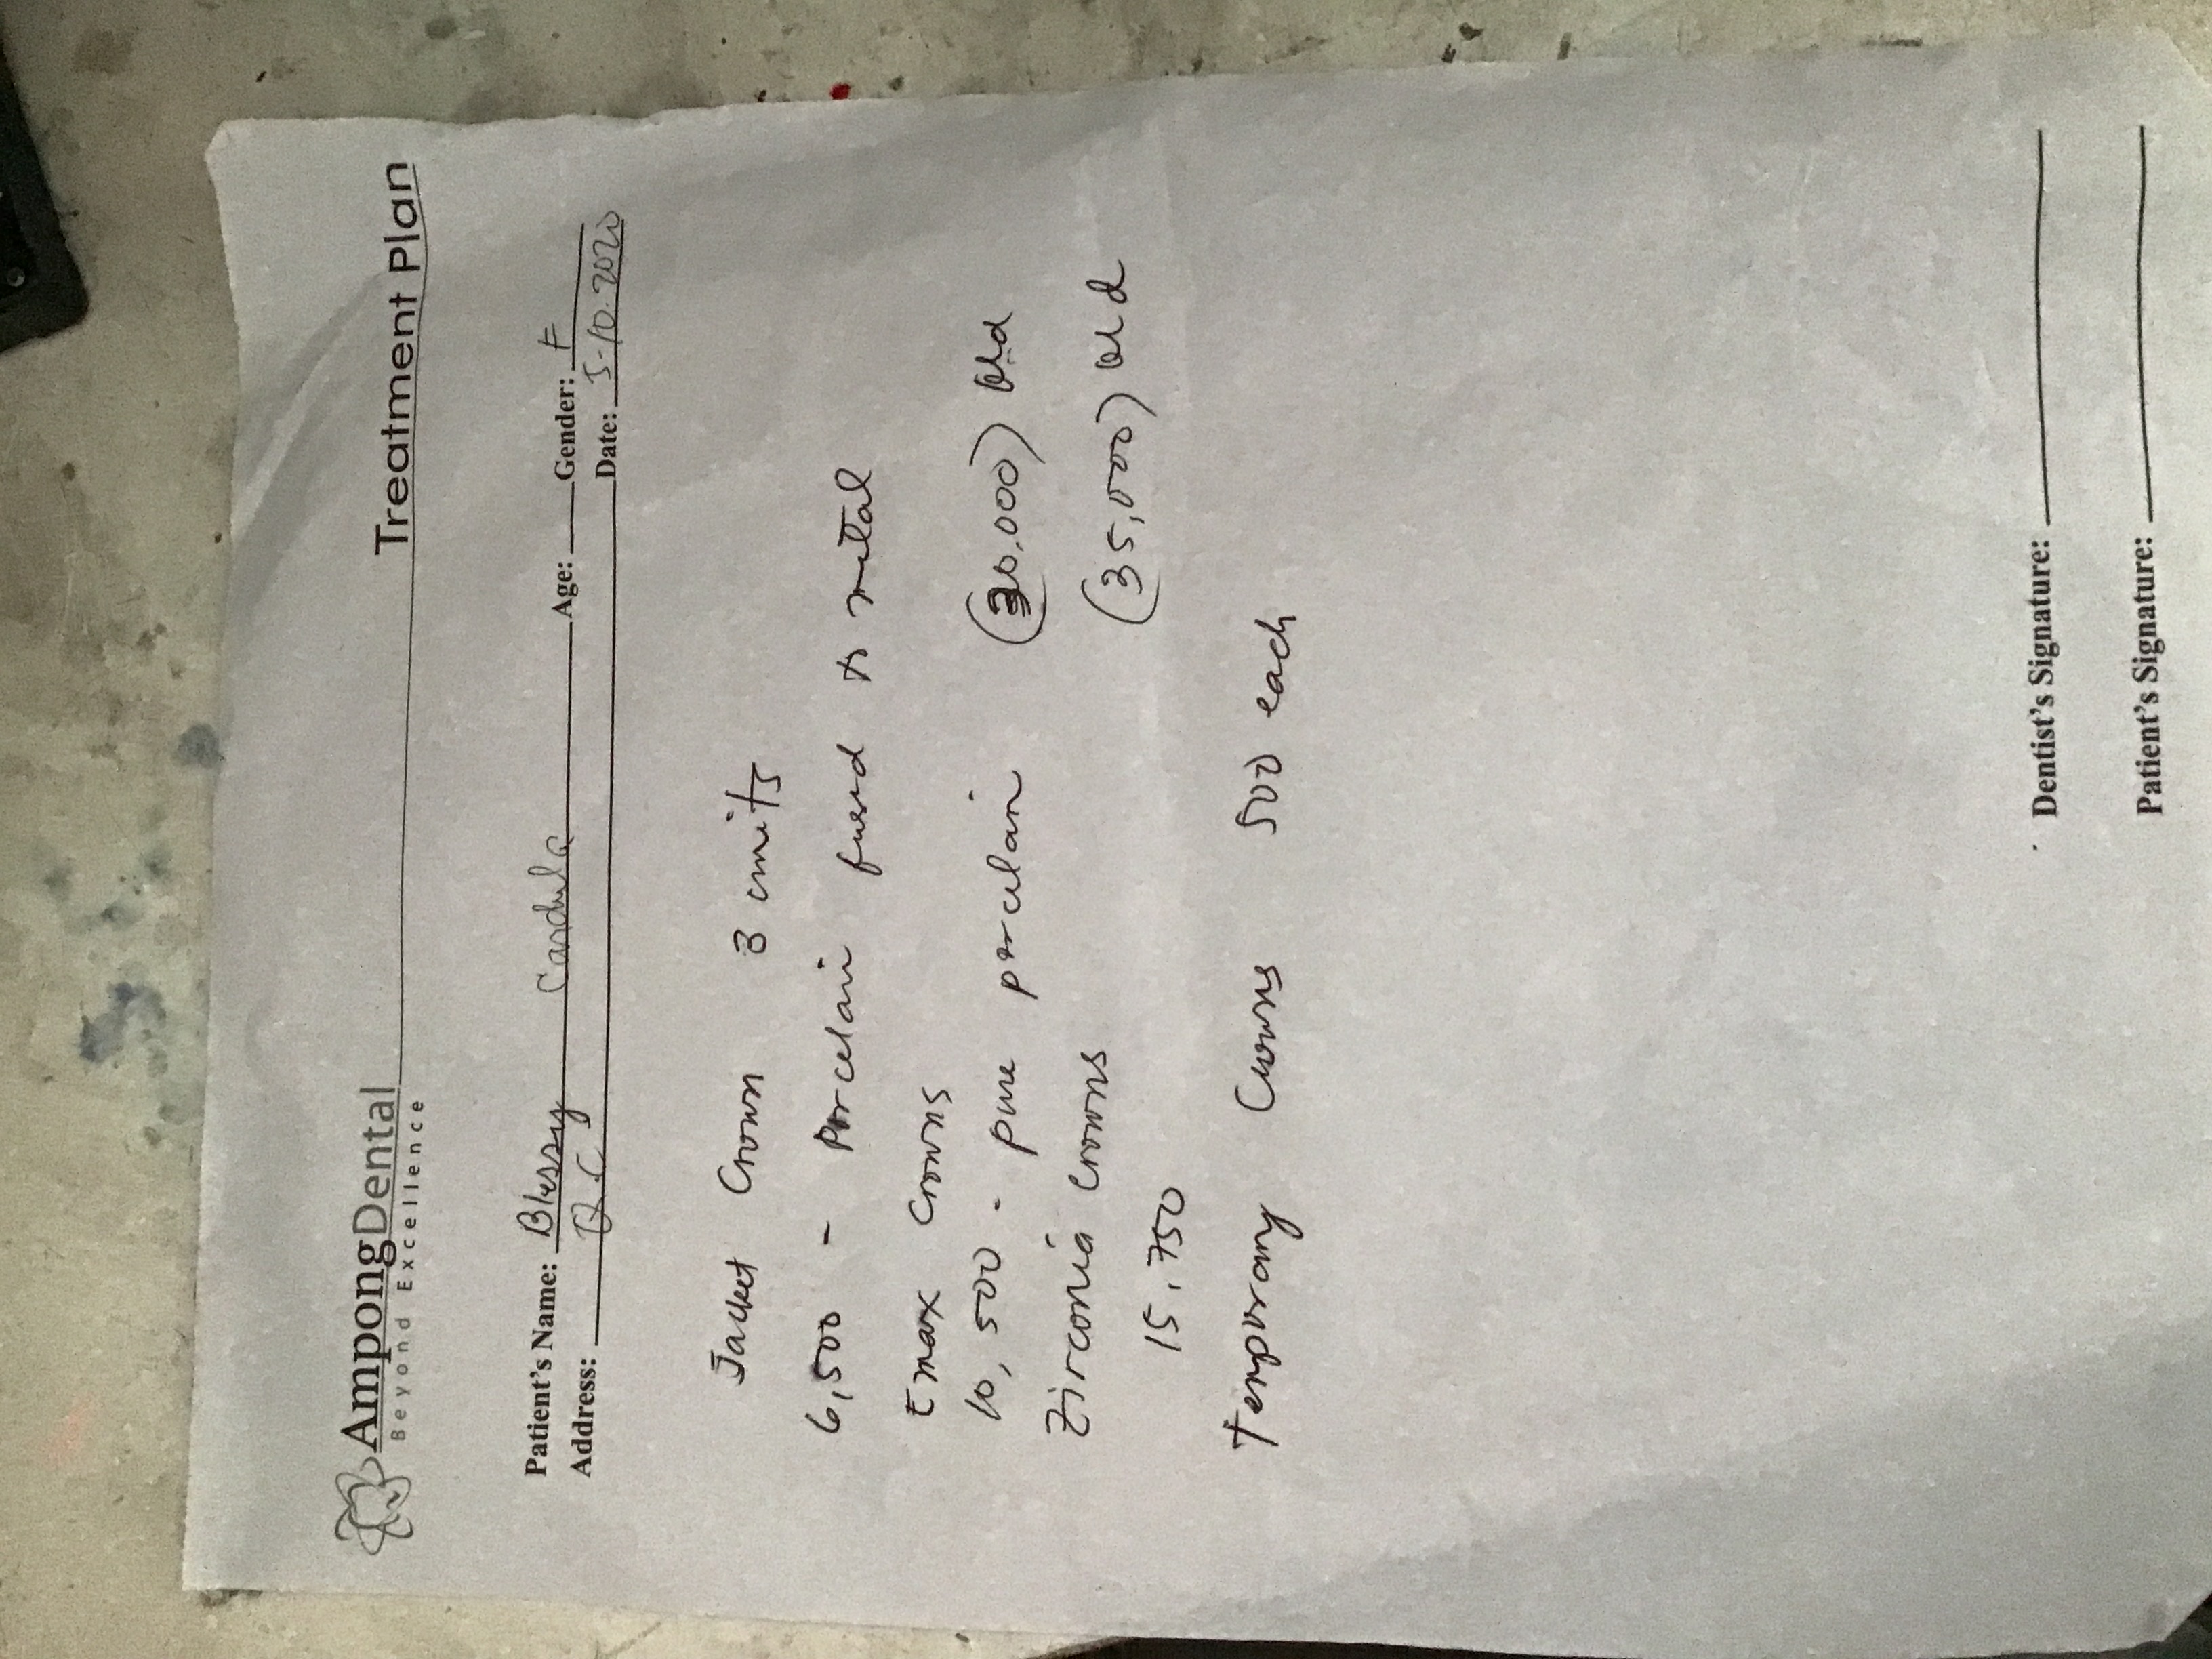 AmpongDental Treatment Plan
Beyond Excellence
Patient's Name: Blessy Age: Gender: F
Address: Q.C Date: 5-10-2020
Jacket Crown 3 units
6,500 - Porcelain fused to metal
Emax Crowns
10,500 - pure porcelain (30,000) old
Zirconia Crowns (35,000) old
15,750
Temporary Crowns 500 each
Dentist's Signature:
Patient's Signature: